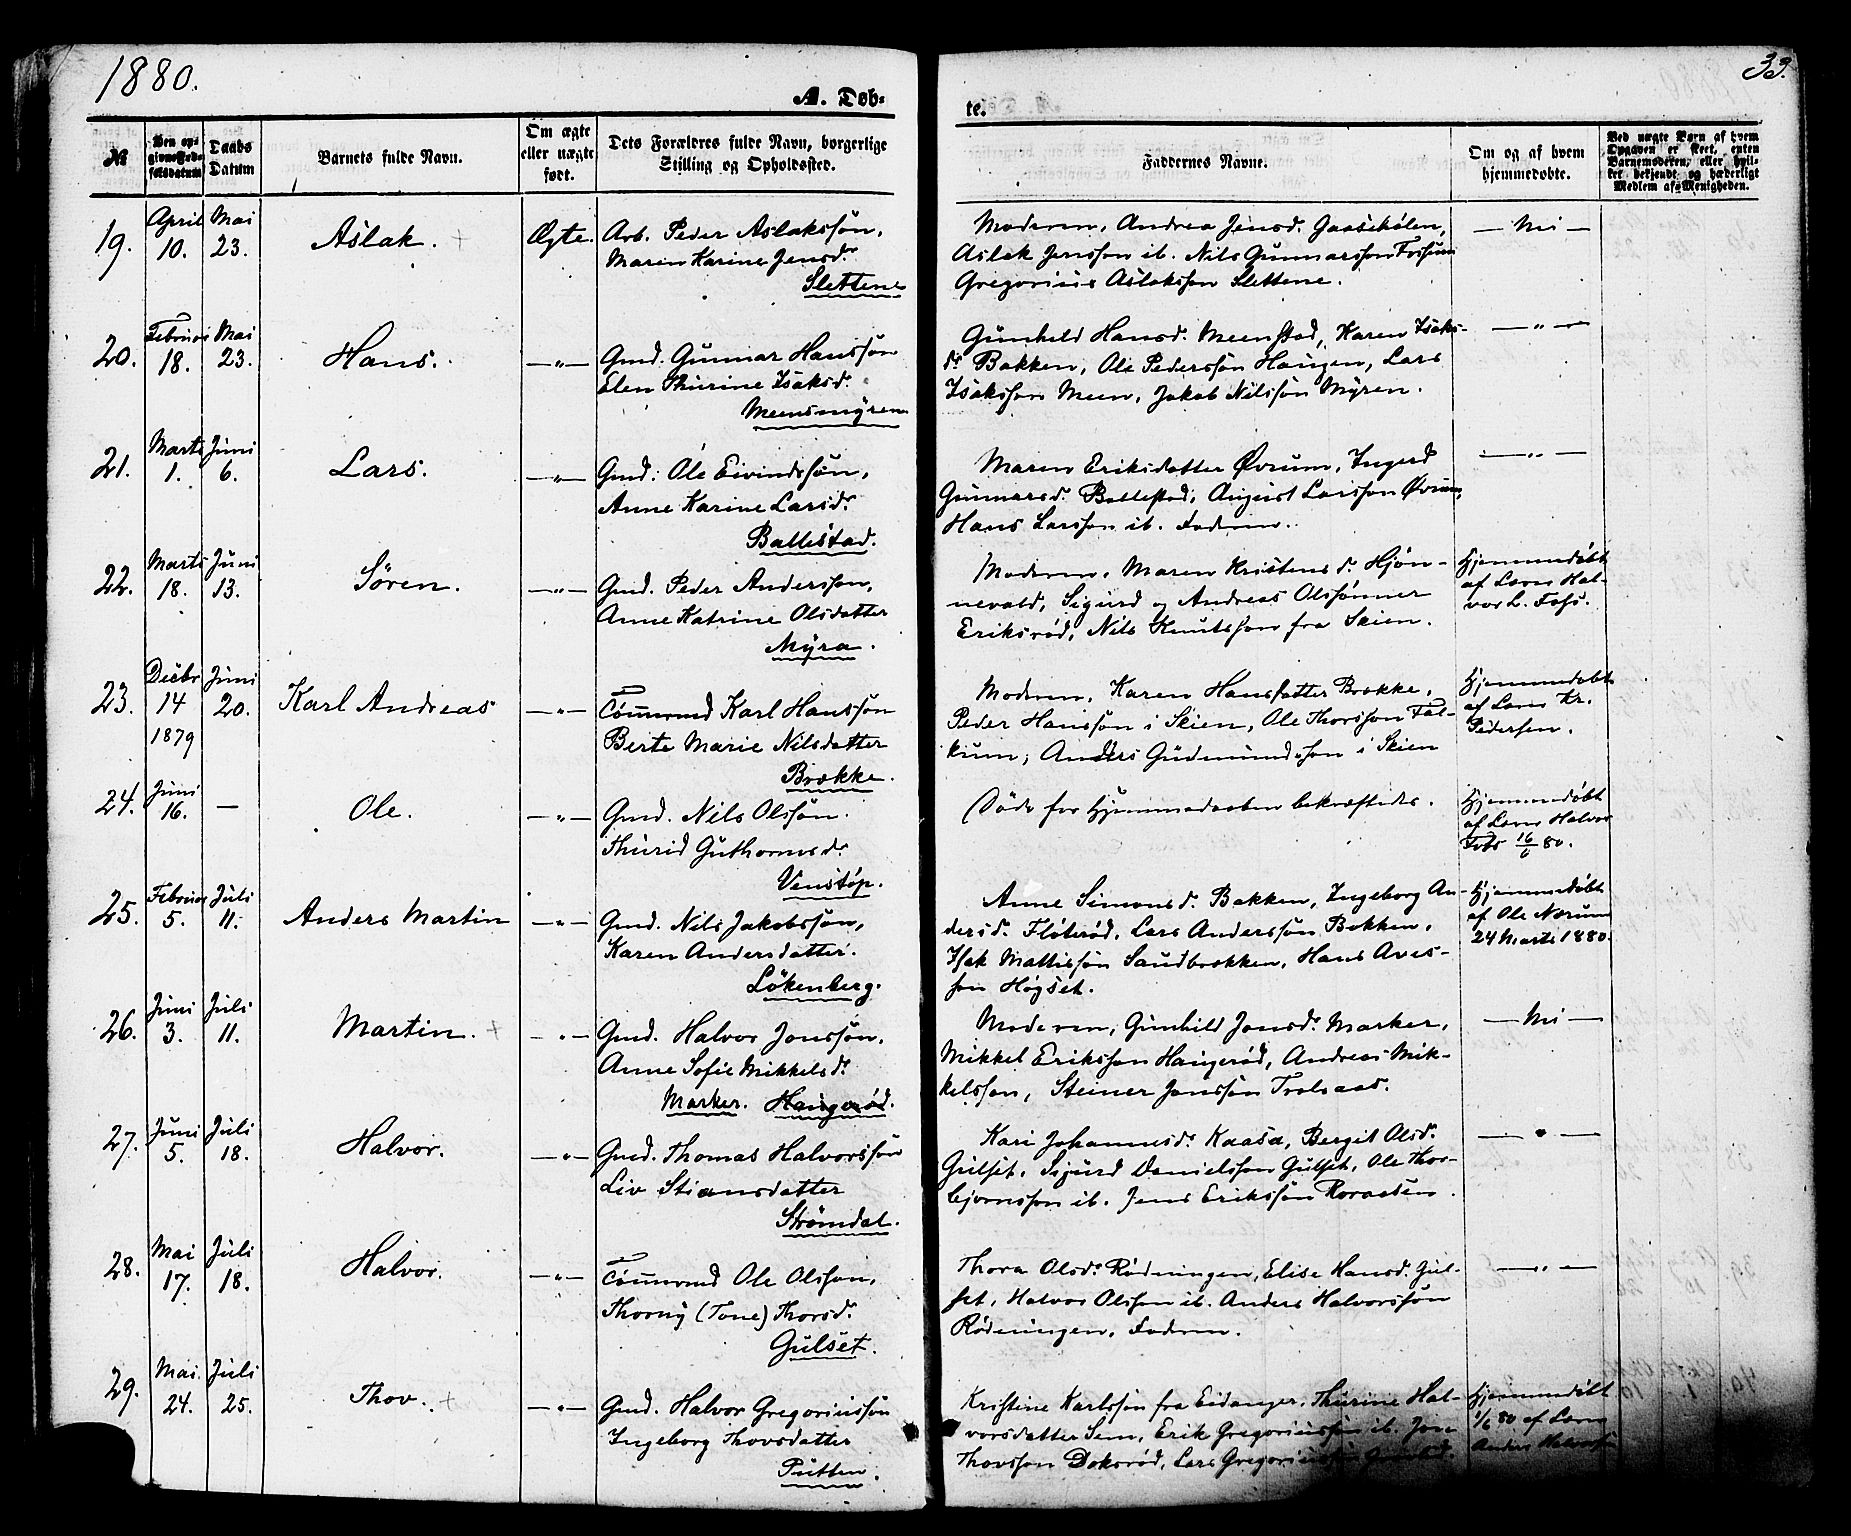 1880.
33.
A. Døb-
te.
№
Den op-
givne Fød-
selsdatum
Daabs
Datum
Barnets fulde Navn.
Om ægte
eller uægte
født.
Dets Forældres fulde Navn, borgerlige
Stilling og Opholdssted.
Faddernes Navne.
Om og af hvem
hjemmedøbte.
Ved uægte Barn af hvem
Opgaven er skeet, enten
Barnemoderen, eller hvil-
ket bekjendt og hæderligt
Medlem af Menigheden.
19.
April
10.
Mai
23.
Aslak.
Ægte.
Arb. Peder Aslakssøn,
Maren Karine Jensd.
Slettene
Moderen, Andrea Jensd. Gaasehølen,
Aslak Jensson ib. Nils Gunnarsson Fossum
Gregorius Aslaksson Slettene.
— Nei —
20.
Februar
18.
Mai
23.
Hans.
—"—
Gmd. Gunnar Hanssøn
Elen Thurine Isaksd.
Meensmyren
Gunhild Hansd. Meenstad, Karen Isaks-
d. Bakken, Ole Pederssøn Haugen, Lars
Isakssøn Meen, Jakob Nilssøn Myren.
—"—
21.
Marts
1.
Juni
6.
Lars.
—"—
Gmd. Ole Eivindssøn,
Anne Karine Larsd.
Ballestad.
Maren Eriksdatter Øvrum, Ingerd
Gunnarsd. Ballestad, August Larsson Øvrum,
Hans Larsson ib. Faderen.
—"—
22.
Marts
18.
Juni
13.
Søren.
—"—
Gmd. Peder Anderssøn,
Anne Katrine Olsdatter
Myra.
Moderen, Maren Kristens d. Hjøn-
nevald, Sigurd og Andreas Olsønner
Eriksrød, Nils Knutsson fra Skien.
Hjemmedøbt
af Læns Hal-
vor L. Foss.
23.
Decbr
14
1879
Juni
20.
Karl Andreas
—"—
Tømmermd Karl Hanssøn
Berte Marie Nilsdatter
Brække.
Moderen, Karen Hansdatter Brække,
Peder Hanssøn i Skien, Ole Thorsson Fal-
kum, Anders Gudmundsson i Skien
Hjemmedøbt
af Læns Kr.
Pedersen.
24.
Juni
16.
—
Ole.
—"—
Gmd. Nils Olssøn.
Thurid Guthormsd.
Venstøp.
Døde før Hjemmedaaben bekræftedes.
Hjemmedøbt
af Læns Halvor
Fobs 16/6 80.
25.
Februar
5.
Juli
11.
Anders Martin
—"—
Gmd. Nils Jakobssøn,
Karen Andersdatter.
Løkenberg.
Anne Simonsd. Bakken, Ingeborg An-
dersd. Fløterød, Lars Anderssøn Bakken,
Isak Mattissøn Sandbrækken, Hans Aves-
søn Høgset.
Hjemmedøbt
af Ole Nærum
24 Marts 1880.
26.
Juni
3.
Juli
11.
Martin.
—"—
Gmd. Halvor Jonssøn,
Anne Sofie Mikkelsd.
Marker. Haugerød.
Moderen, Gunhild Jonsd. Marker,
Mikkel Eriksson Haugerød, Andreas Mik-
kelssøn, Steiner Jonssøn Trolsaas.
— Nei —
27.
Juni
5.
Juli
18.
Halvor.
—"—
Gmd. Thomas Halvorssøn
Liv Stiansdatter
Strømdal.
Kari Johannesd. Kaasa, Bergit Olsd.
Gulset, Sigurd Danielsson Gulset, Ole Thor-
bjørnsson ib. Jens Eriksson Roraasen.
—"—
28.
Mai
17.
Juli
18.
Halvor.
—"—
Tømmermd Ole Olsson,
Thorny (Tone) Thorsd.
Gulset.
Thora Olsd. Rødningen, Elise Hansd. Gul-
set, Halvor Olsson ib. Anders Halvorssøn
Rødningen, Faderen.
—"—
29.
Mai
24.
Juli
25.
Thov.
—"—
Gmd. Halvor Gregoriussøn
Ingeborg Thovsdatter
Putten.
Kristine Karlssøn fra Eidanger, Thurine Hal-
vorsdatter Sem, Erik Gregoriussøn ib. Jon
Thovsson Doksrød, Lars Gregoriussøn
Hjemmedøbt
1/6 80 af Læns
Anders Halvorsen